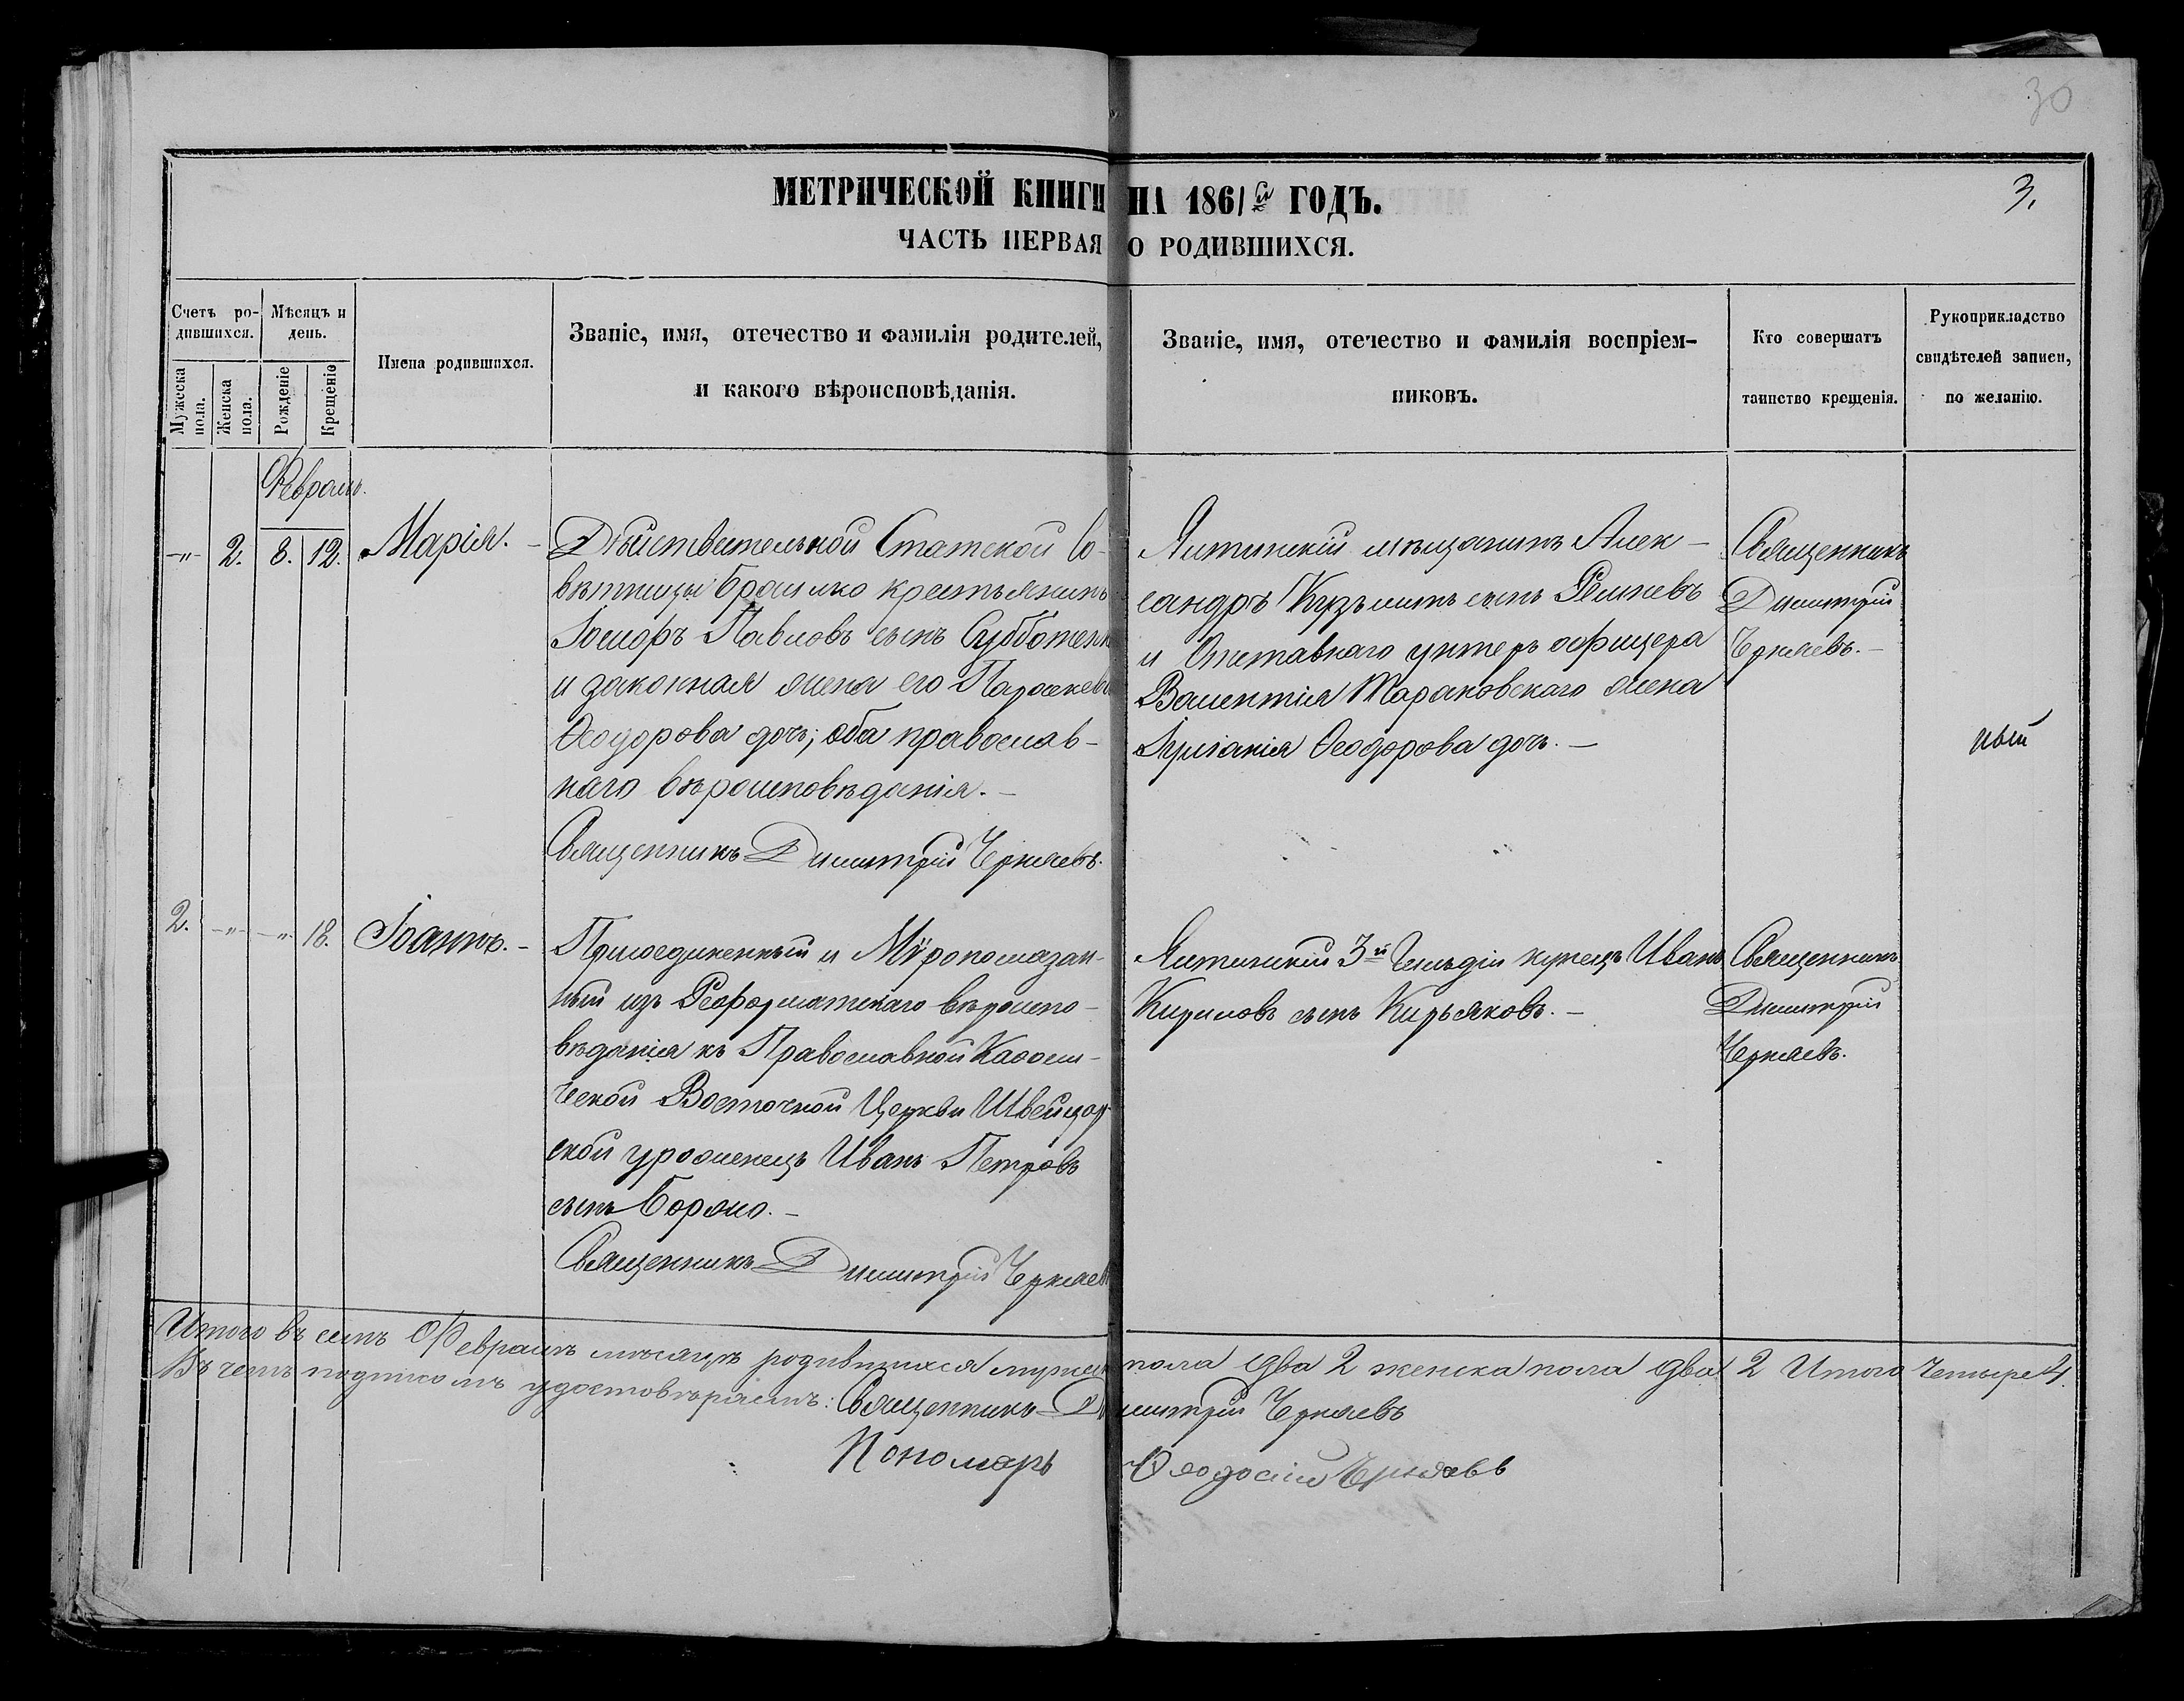 30
3.
МЕТРИЧЕСКОЙ КНИГИ НА 1861й ГОДЪ.
ЧАСТЬ ПЕРВАЯ О РОДИВШИХСЯ.
Счетъ родившихся.
Мужеска пола.
Женска пола.
Мѣсяцъ и день.
Рожденіе
Крещеніе
Имена родившихся.
Званіе, имя, отечество и фамилія родителей,
и какого вѣроисповѣданія.
Званіе, имя, отечество и фамилія воспріем-
никовъ.
Кто совершатъ
таинство крещенія.
Рукоприкладство
свидѣтелей записи,
по желанію.
Февраль.
-„- 2. 8. 12. Марія. -
Дѣйствительной Статской Со-
вѣтницы крестьянинъ
Павловъ сынъ
и законная жена его Параскева
Ѳеодорова дочь; оба православ-
наго вѣроисповѣданія. -
Священникъ Димитрій Черняевъ.
Ялтинскій мѣщанинъ Алек-
сандръ Кузьминъ сынъ
и Отставнаго унтеръ офицера
Валентія Тараковскаго жена
Іуліанія Ѳеодорова дочь. -
Священникъ
Димитрій
Черняевъ. -
ный
2. -„- -„- 18. Іоаннъ. -
Присоединенный и Мѵропомазан-
ный изъ Реформатскаго вѣроиспо-
вѣданія къ Православной Каѳоли-
ческой Восточной Церкви Швейцар-
ской уроженецъ Иванъ Петровъ
сынъ
Священникъ Димитрій Черняевъ
Ялтинскій 3й Гильдіи купецъ Иванъ
Кириловъ сынъ Кирьяковъ. -
Священникъ
Димитрій
Черняевъ.
Итого въ семъ Февралѣ мѣсяцѣ родившихся мужеска пола два 2 женска пола два 2 Итого четыре 4.
Въ чемъ подписомъ удостовѣряемъ: Священникъ Димитрій Черняевъ
Пономарь Ѳеодосій Черняевъ